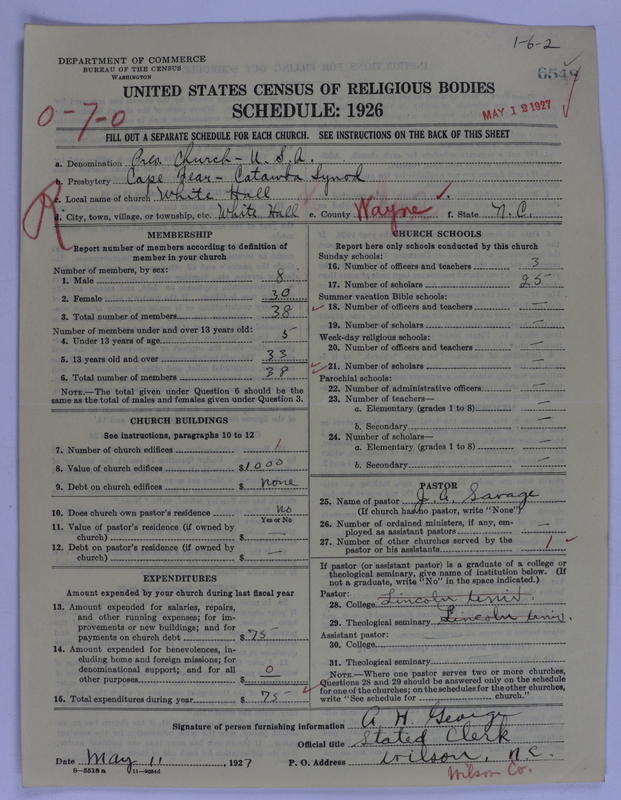 1-6-2
DEPARTMENT OF COMMERCE
BUREAU OF THE CENSUS
WASHINGTON
6548
UNITED STATES CENSUS OF RELIGIOUS BODIES
SCHEDULE: 1926
MAY 12 1927
0-7-0
FILL OUT A SEPARATE SCHEDULE FOR EACH CHURCH. SEE INSTRUCTIONS ON THE BACK OF THIS SHEET
a. Denomination Pres. Church - U.S.A.
b. Presbytery Cape Fear - Catawba Synod
c. Local name of church White Hall
d. City, town, village, or township, etc. White Hall e. County Wayne f. State N.C.
R
MEMBERSHIP
Report number of members according to definition of
member in your church
Number of members, by sex:
1. Male 8
2. Female 30
3. Total number of members 38
Number of members under and over 13 years old:
4. Under 13 years of age 5
5. 13 years old and over 33
6. Total number of members 38
NOTE.—The total given under Question 6 should be the
same as the total of males and females given under Question 3.
CHURCH BUILDINGS
See instructions, paragraphs 10 to 12
7. Number of church edifices 1
8. Value of church edifices $1000
9. Debt on church edifices $ none
10. Does church own pastor's residence no
Yes or No
11. Value of pastor's residence (if owned by
church) $ —
12. Debt on pastor's residence (if owned by
church) $ —
EXPENDITURES
Amount expended by your church during last fiscal year
13. Amount expended for salaries, repairs,
and other running expenses; for im-
provements or new buildings; and for
payments on church debt $ 75
14. Amount expended for benevolences, in-
cluding home and foreign missions; for
denominational support; and for all
other purposes $ 0
15. Total expenditures during year $ 75
CHURCH SCHOOLS
Report here only schools conducted by this church
Sunday schools:
16. Number of officers and teachers 3
17. Number of scholars 25
Summer vacation Bible schools:
18. Number of officers and teachers —
19. Number of scholars —
Week-day religious schools:
20. Number of officers and teachers —
21. Number of scholars —
Parochial schools:
22. Number of administrative officers —
23. Number of teachers—
a. Elementary (grades 1 to 8) —
b. Secondary —
24. Number of scholars—
a. Elementary (grades 1 to 8) —
b. Secondary —
PASTOR
25. Name of pastor J. A. Savage
(If church has no pastor, write "None")
26. Number of ordained ministers, if any, em-
ployed as assistant pastors —
27. Number of other churches served by the
pastor or his assistants 1
If pastor (or assistant pastor) is a graduate of a college or
theological seminary, give name of institution below. (If
not a graduate, write "No" in the space indicated.)
Pastor:
28. College Lincoln Univ.
29. Theological seminary Lincoln Univ.
Assistant pastor:
30. College
31. Theological seminary
NOTE.—Where one pastor serves two or more churches,
Questions 28 and 29 should be answered only on the schedule
for one of the churches; on the schedules for the other churches,
write "See schedule for church."
Signature of person furnishing information A. H. George
Official title Stated Clerk
Date May 11, 1927 P. O. Address Wilson, N.C.
8-5518a
Wilson Co.